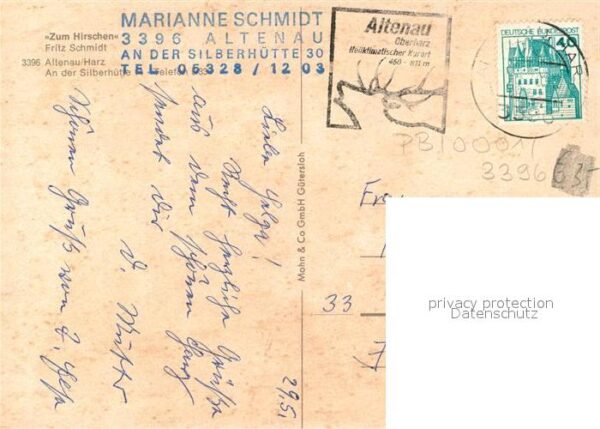 »Zum Hirschen«
Fritz Schmidt
3396 Altenau/Harz
An der Silberhütte
MARIANNE SCHMIDT
3396 ALTENAU
AN DER SILBERHÜTTE 30
TEL. 05328 / 12 03
Altenau
Oberharz
Heilklimatischer Kurort
450 - 811 m
DEUTSCHE BUNDESPOST
40
PB10001
3396
635
29.5.
Liebe Helga!
herzliche Grüße
aus dem schönen Harz
sendet dir
d. Mutter
Schönen Gruß von
Mohn & Co GmbH Gütersloh
33
privacy protection
Datenschutz